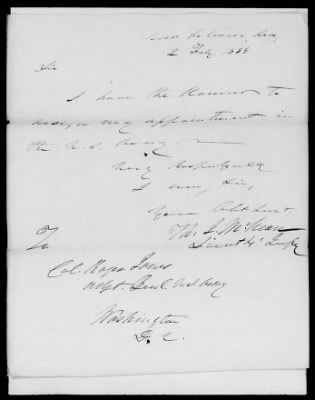 2 Feby.
Sir
I have the Honour to
resign my appointment in
the U.S. Army
Very Respectfully
I am, Sir,
Your Obt Servt.
Th: J. McKean
Lieut 4' Infy
To
Col. Roger Jones
Adjt. Genl. U.S. Army
Washington
D. C.